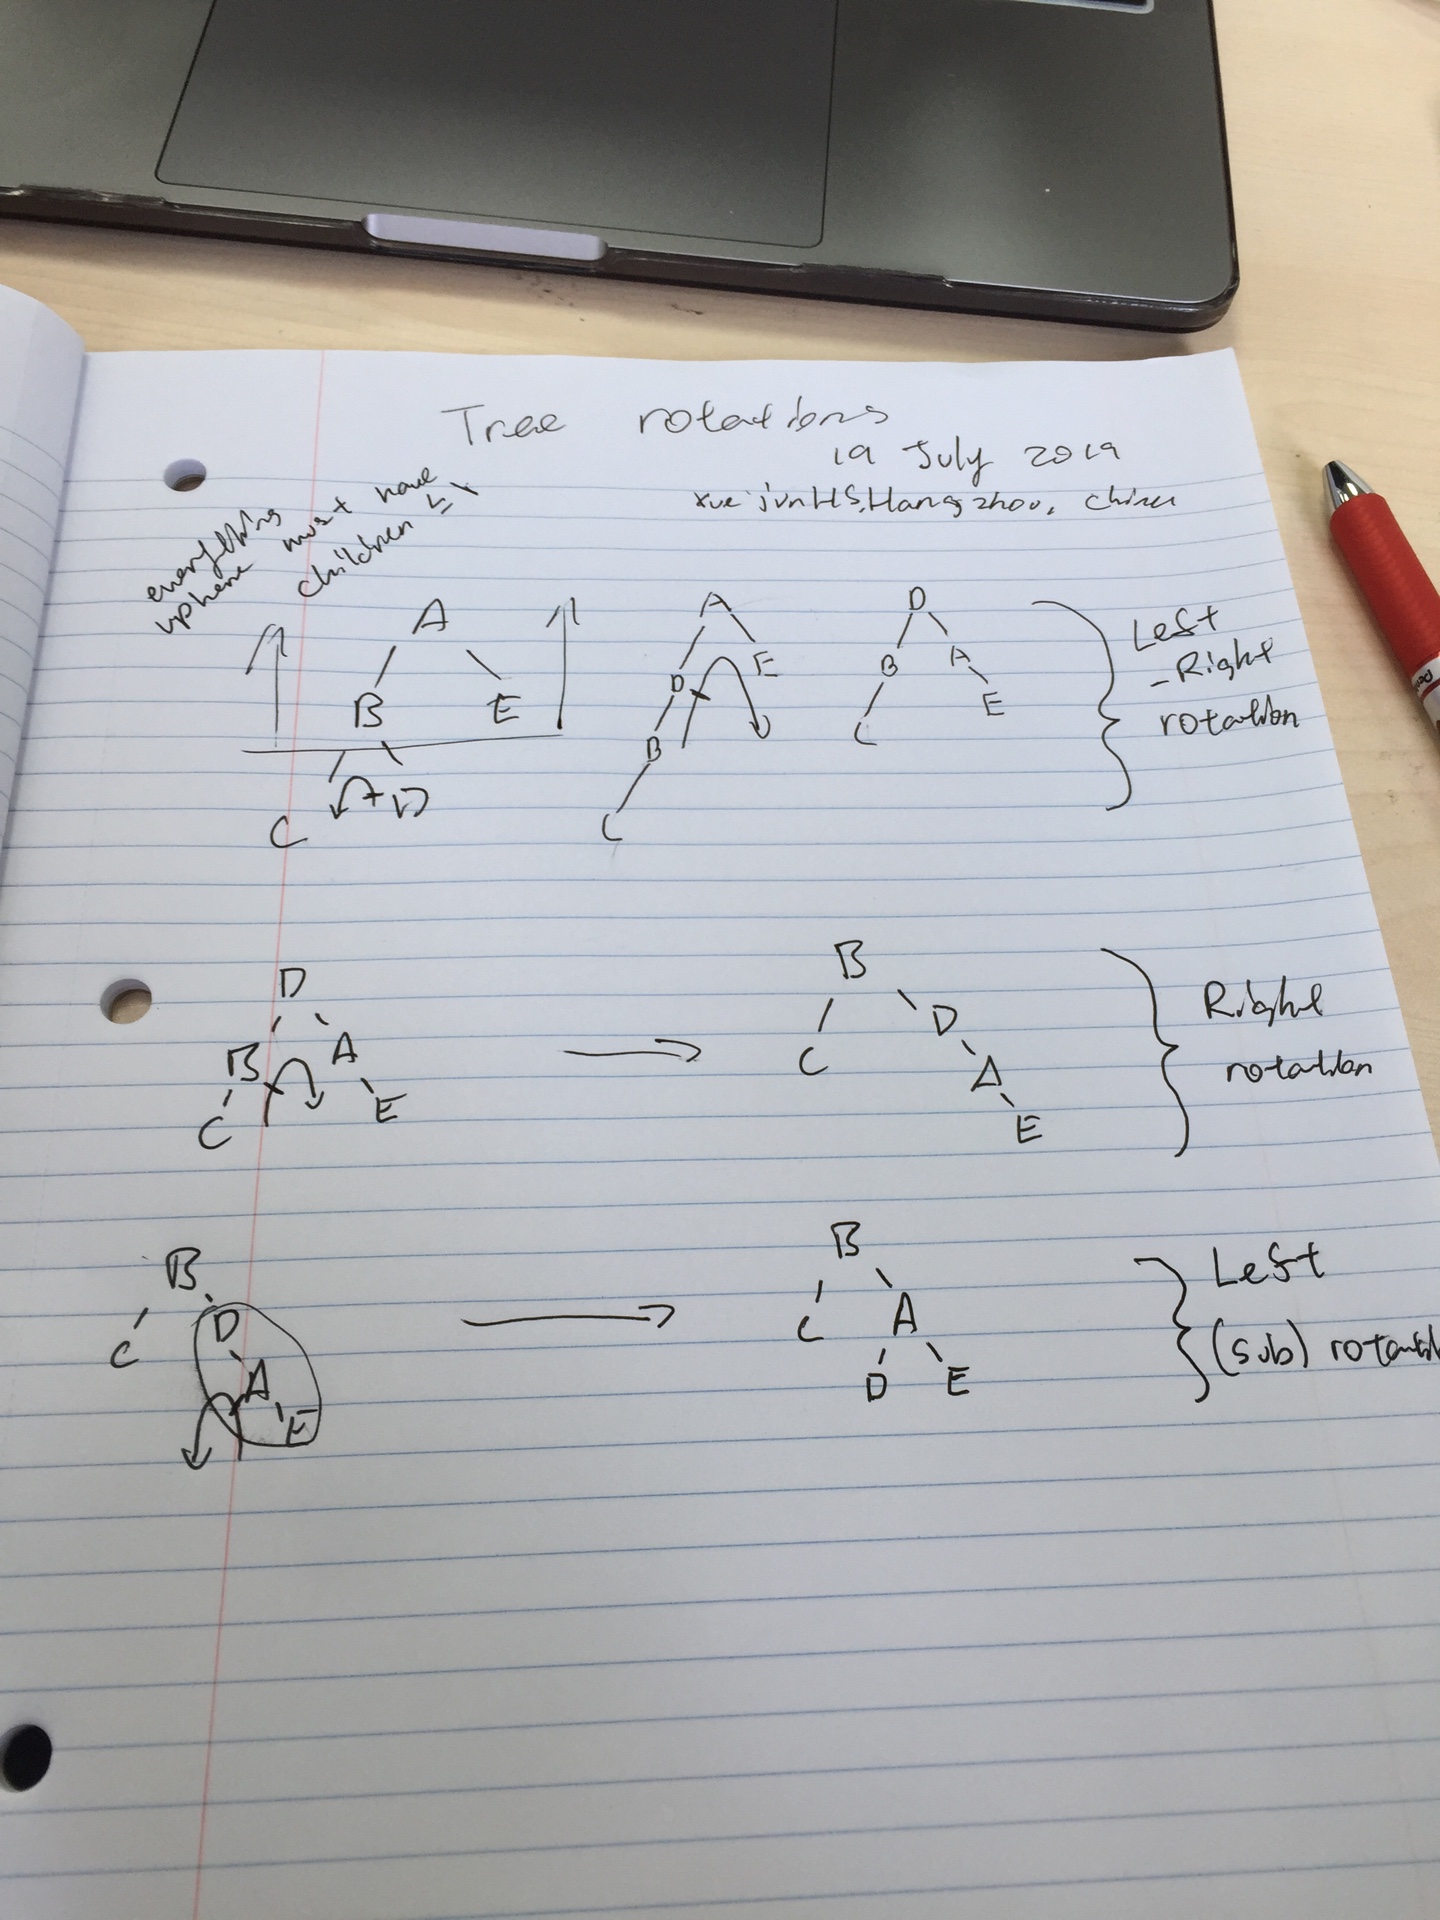 Tree rotations
19 July 2019
xuejunHS, Hangzhou, China
everything
must have
children ≤ 1
A
B E
C D
A
D E
B
C
D
B A
C E
Left
-Right
rotation
D
B A
C E
B
C D
A
E
Right
rotation
B
C D
A
E
B
C A
D E
Left
(sub)